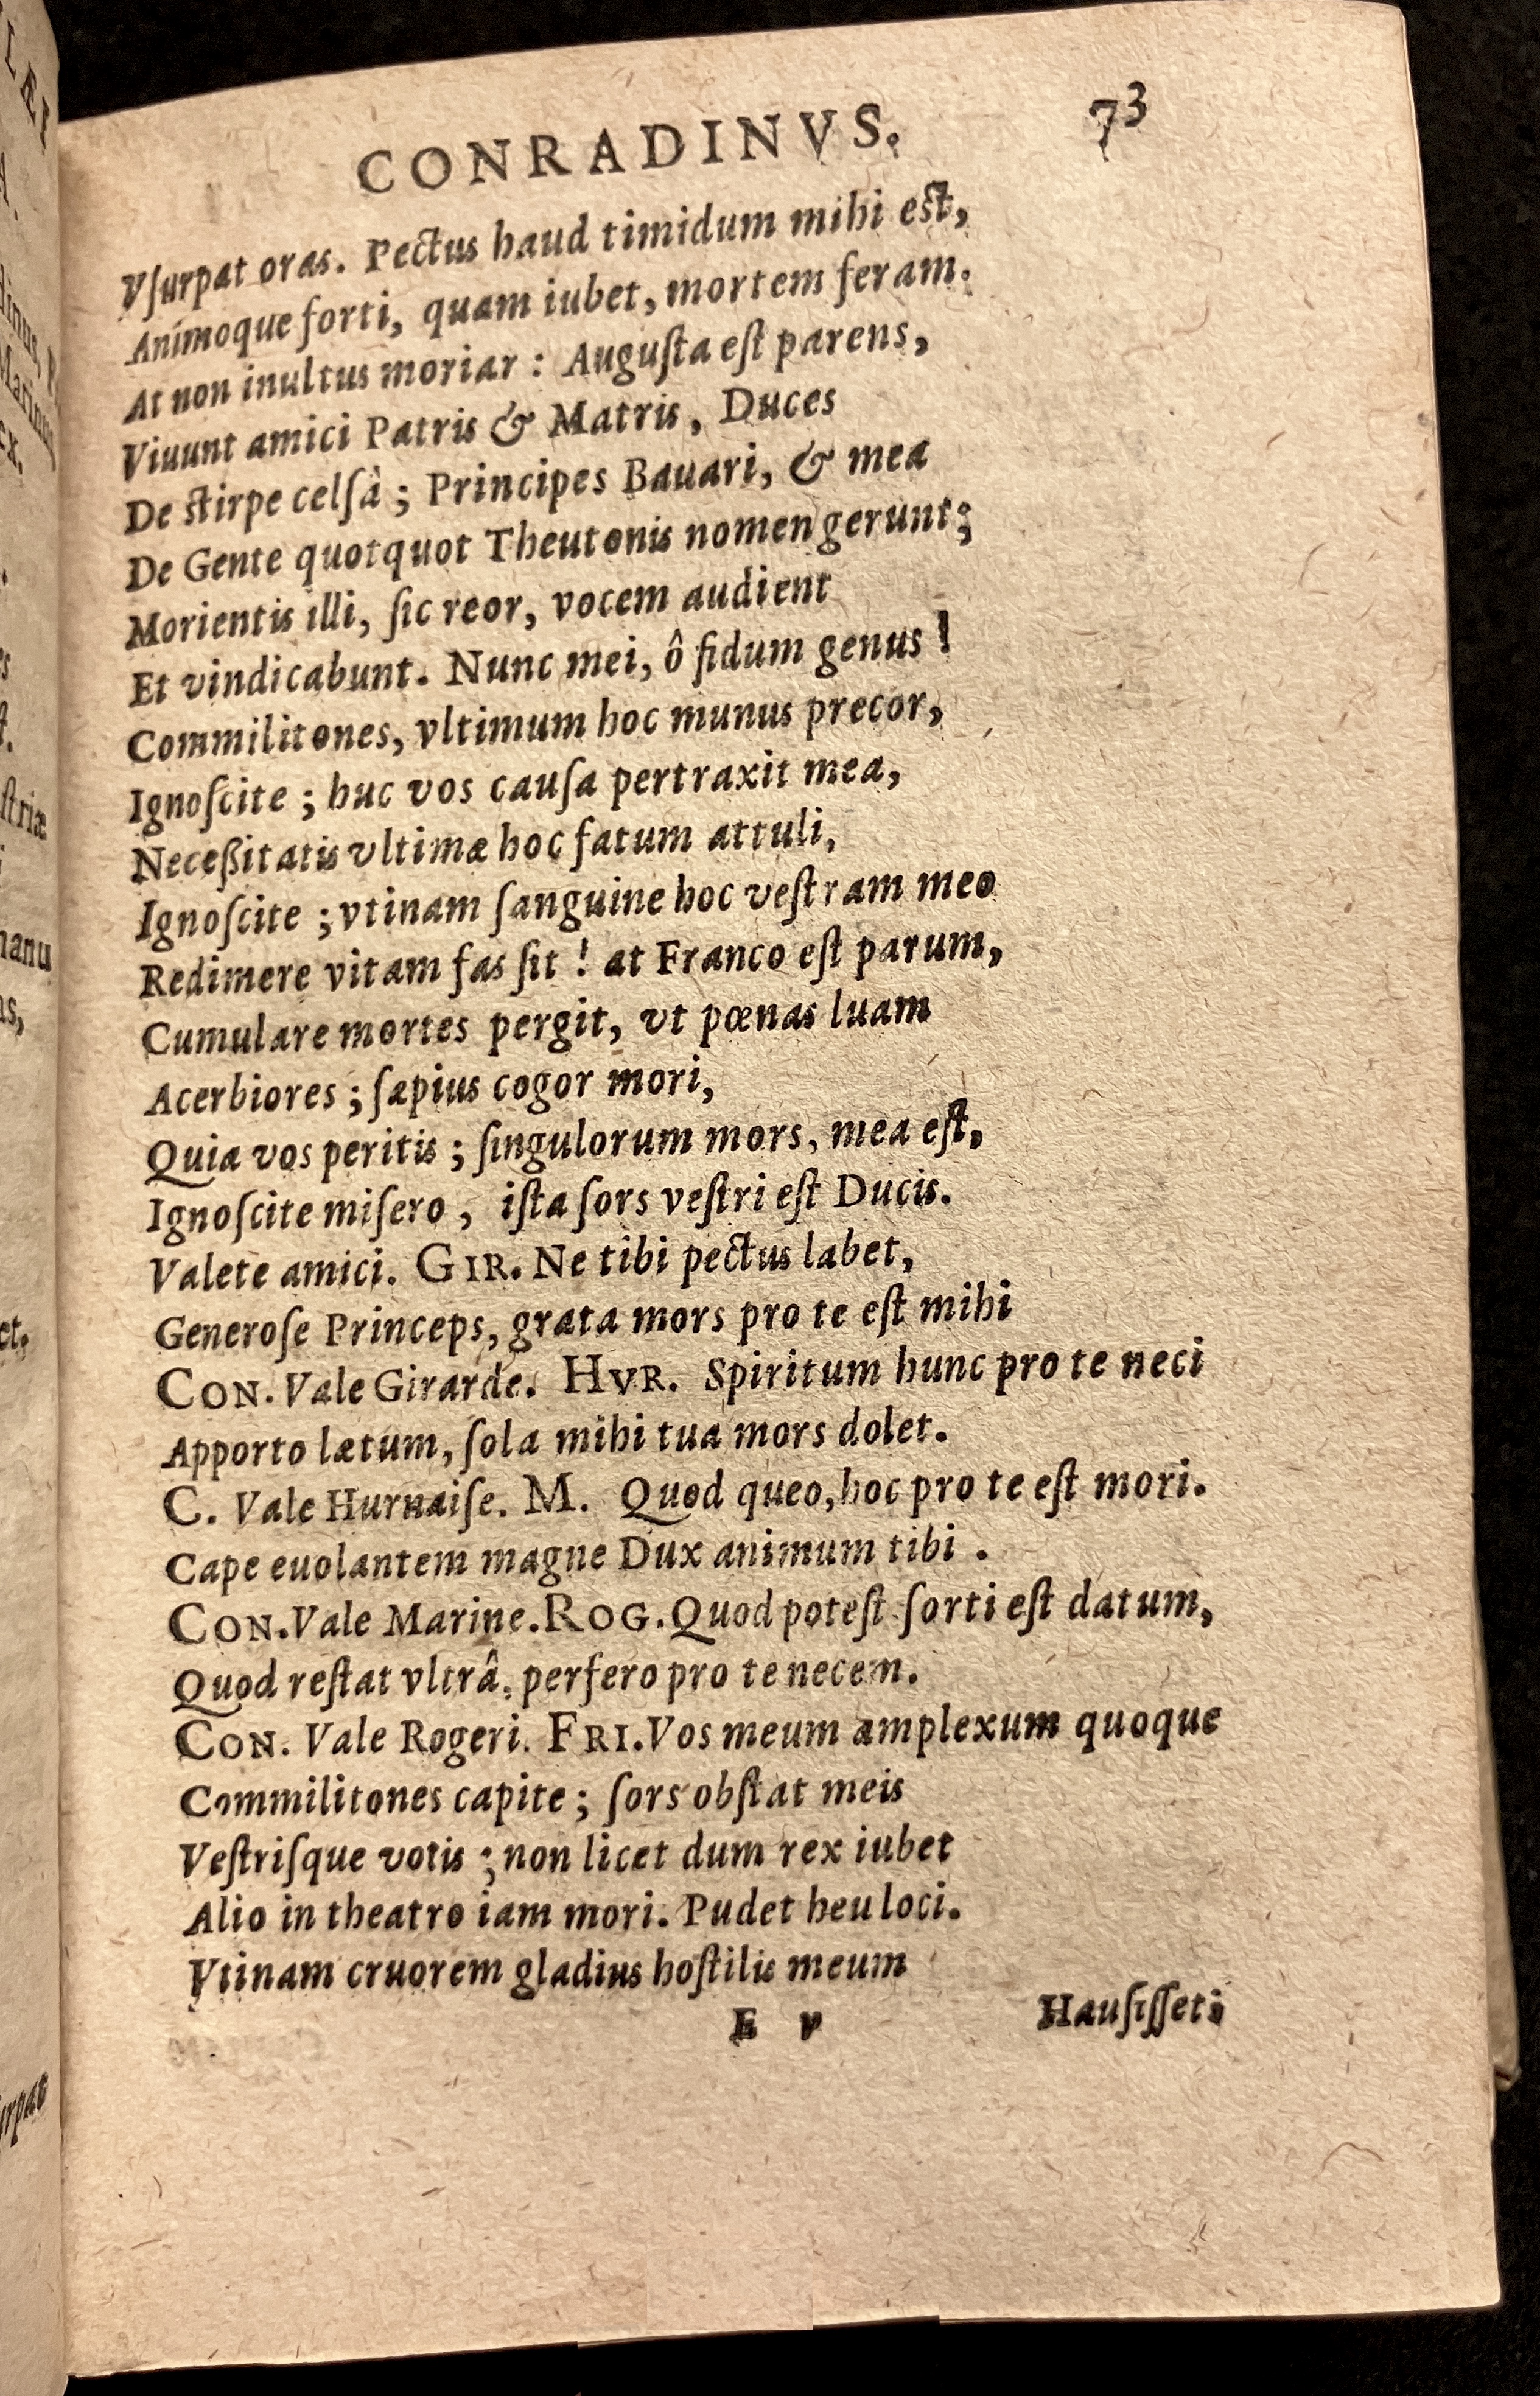 CONRADINVS. 73
Vſurpat oras. Pectus haud timidum mihi eſt,
Animoque forti, quam iubet, mortem feram.
At non inultus moriar : Auguſta eſt parens,
Viuunt amici Patris & Matris, Duces
De ſtirpe celſà ; Principes Bauari, & mea
De Gente quotquot Theutonis nomen gerunt;
Morientis illi, ſic reor, vocem audient
Et vindicabunt. Nunc mei, ô fidum genus !
Commilitones, vltimum hoc munus precor,
Ignoſcite ; huc vos cauſa pertraxit mea,
Neceßitatis vltimæ hoc fatum attuli,
Ignoſcite ; vtinam ſanguine hoc veſtram meo
Redimere vitam fas ſit ! at Franco eſt parum,
Cumulare mortes pergit, vt pœnas luam
Acerbiores ; ſæpius cogor mori,
Quia vos peritis ; ſingulorum mors, mea eſt,
Ignoſcite miſero , iſta ſors veſtri eſt Ducis.
Valete amici. GIR. Ne tibi pectus labet,
Generoſe Princeps, grata mors pro te eſt mihi
CON. Vale Girarde. HVR. Spiritum hunc pro te neci
Apporto lætum, ſola mihi tua mors dolet.
C. Vale Hurnaiſe. M. Quod queo, hoc pro te eſt mori.
Cape euolantem magne Dux animum tibi .
CON. Vale Marine. ROG. Quod poteſt ſorti eſt datum,
Quod reſtat vltrâ, perfero pro te necem.
CON. Vale Rogeri. FRI. Vos meum amplexum quoque
Commilitones capite ; ſors obſtat meis
Veſtriſque votis ; non licet dum rex iubet
Alio in theatro iam mori. Pudet heu loci.
Vtinam cruorem gladius hoſtilis meum
E v Hauſiſſet;